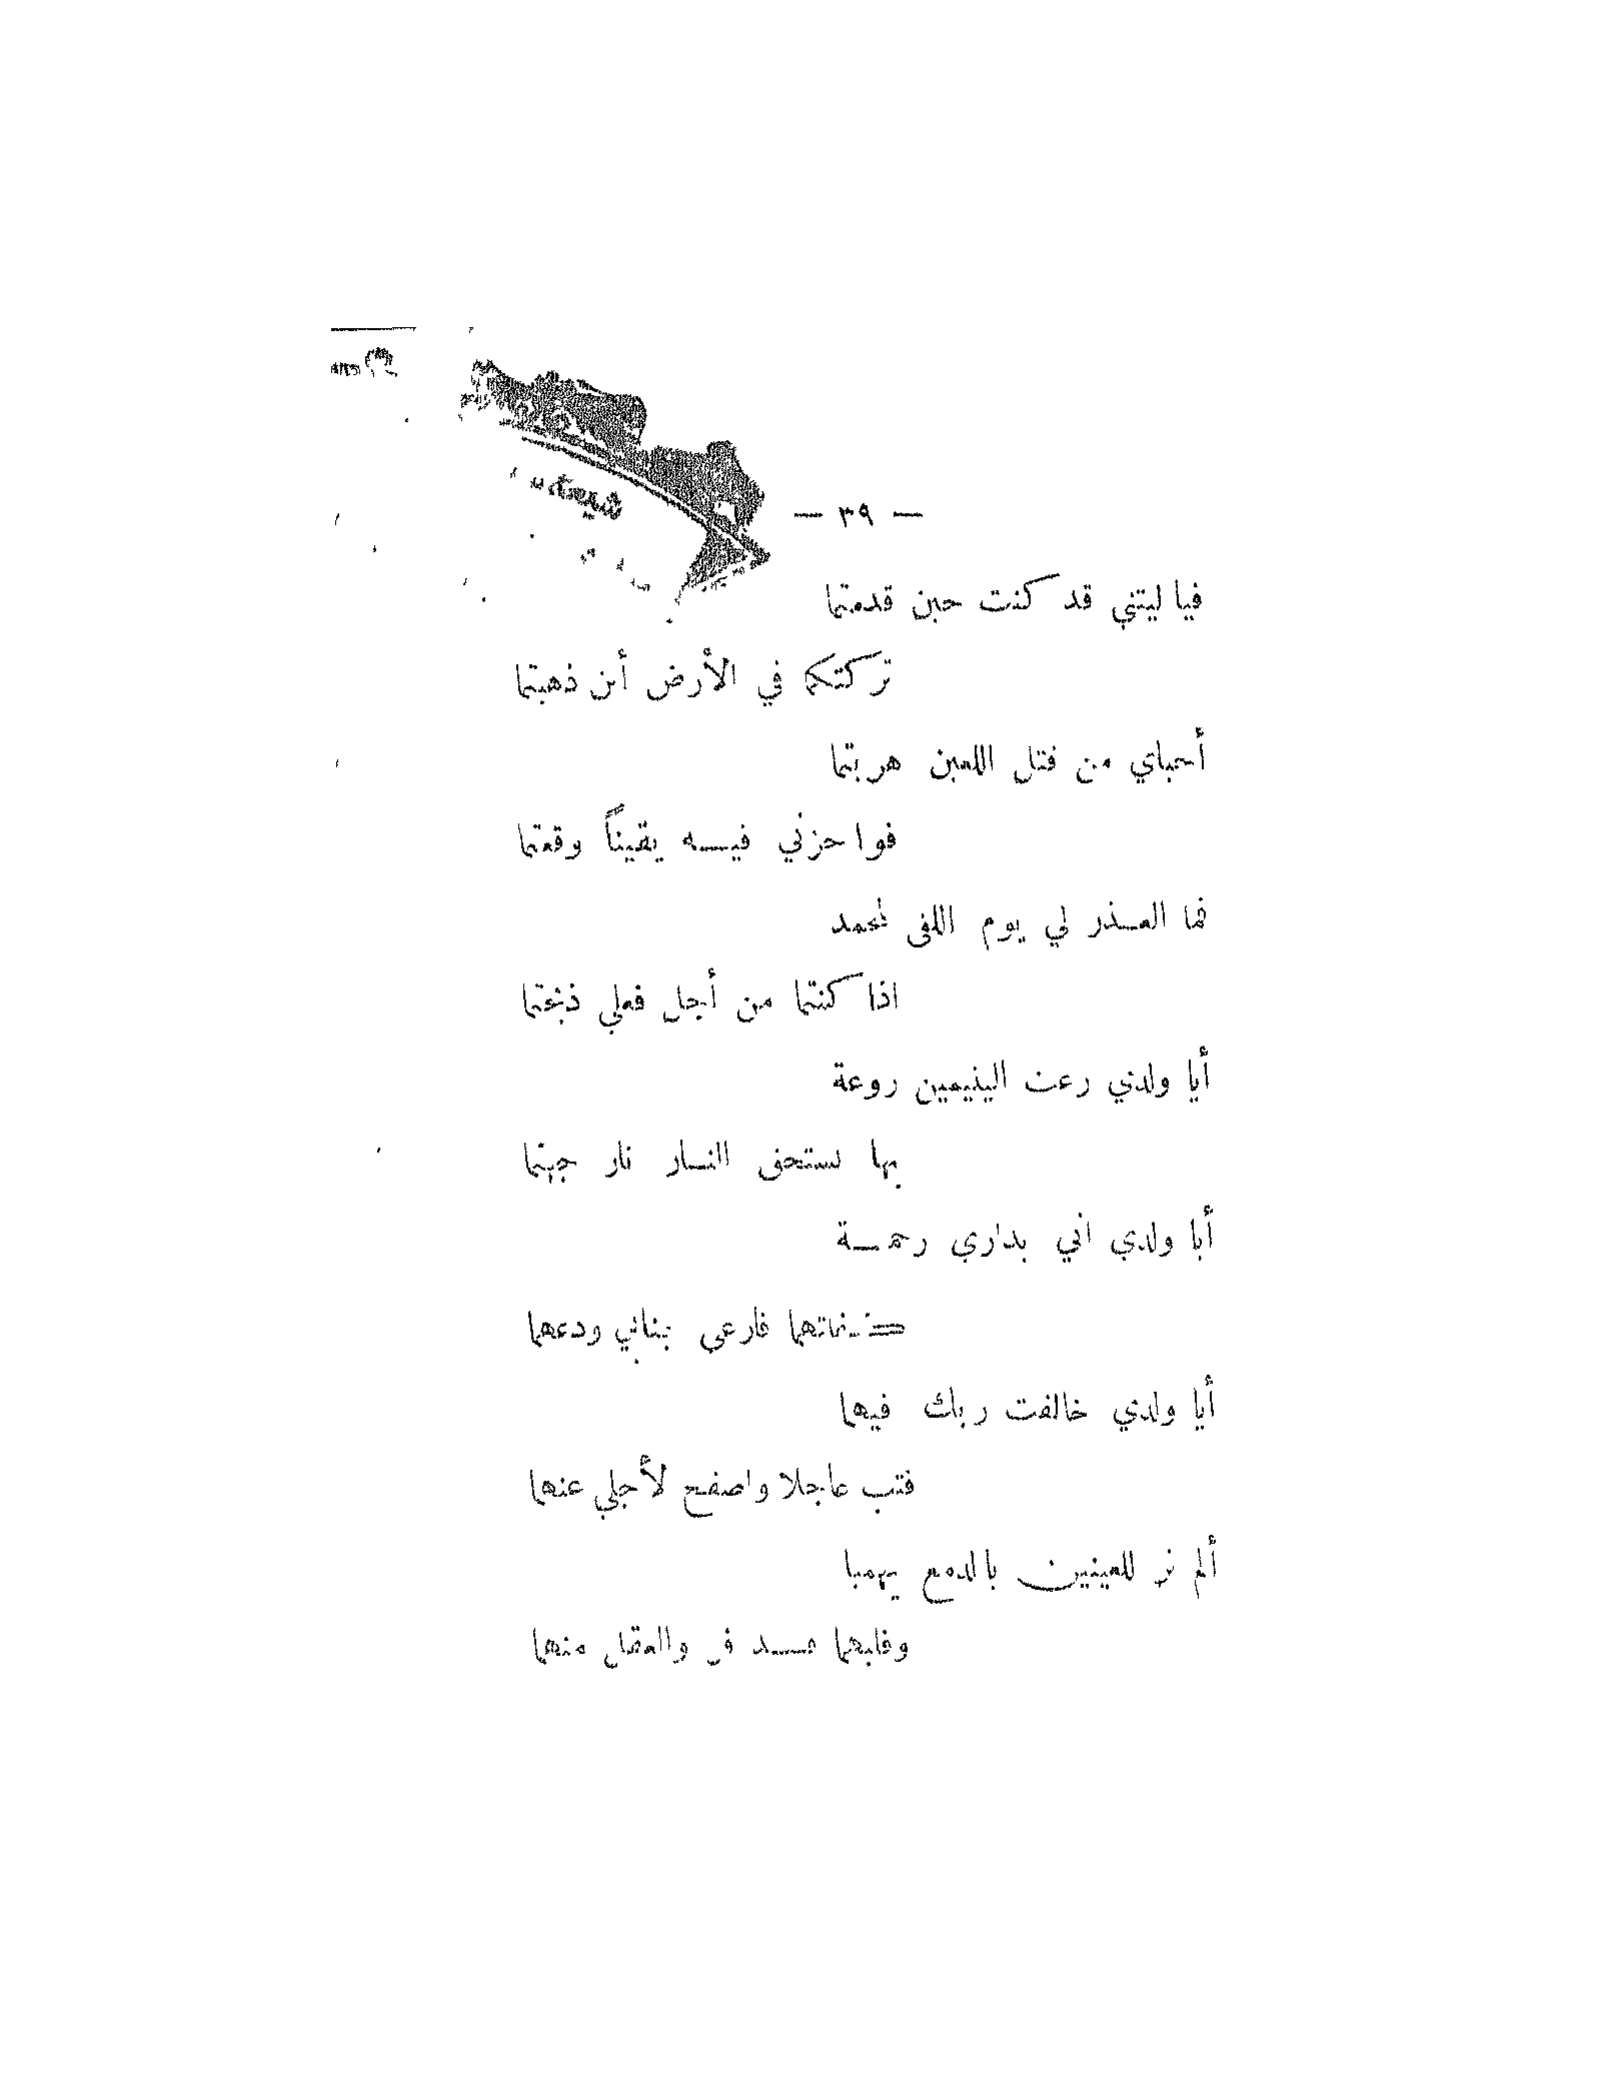 — ٣٩ —
فيا ليتني قد كنت حين قدمتما
تركتكما في الأرض أين ذهبتما
أحباي من قتل اللعين هربتما
فوا حزني فيـــه يقيناً وقعتما
فما العــذر لي يوم اللقى لمحمد
اذا كنتما من أجل فعلي ذبحتما
أيا ولدي رعت اليتيمين روعة
بها تستحق النــار نار جهنما
أيا ولدي اني بداري رحمــة
كتمتهما فارعى بناني ودعهما
أيا ولدي خالفت ربك فيهما
فتب عاجلا واصفح لأجلي عنهما
ألم تر للعينين بالدمع يهميا
وقلبهما قــد فر والعقل منهما